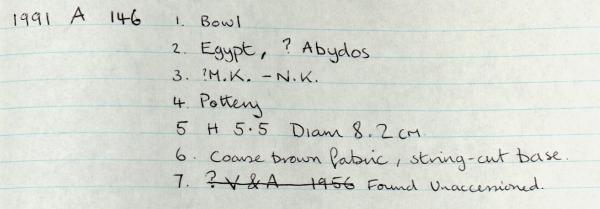 1991 A 146 1. Bowl
2. Egypt, ? Abydos
3. ?M.K. - N.K.
4. Pottery
5 H 5.5 Diam 8.2 cm.
6. Coarse brown fabric, string-cut base.
7. ? V & A 1956 Found Unaccessioned.